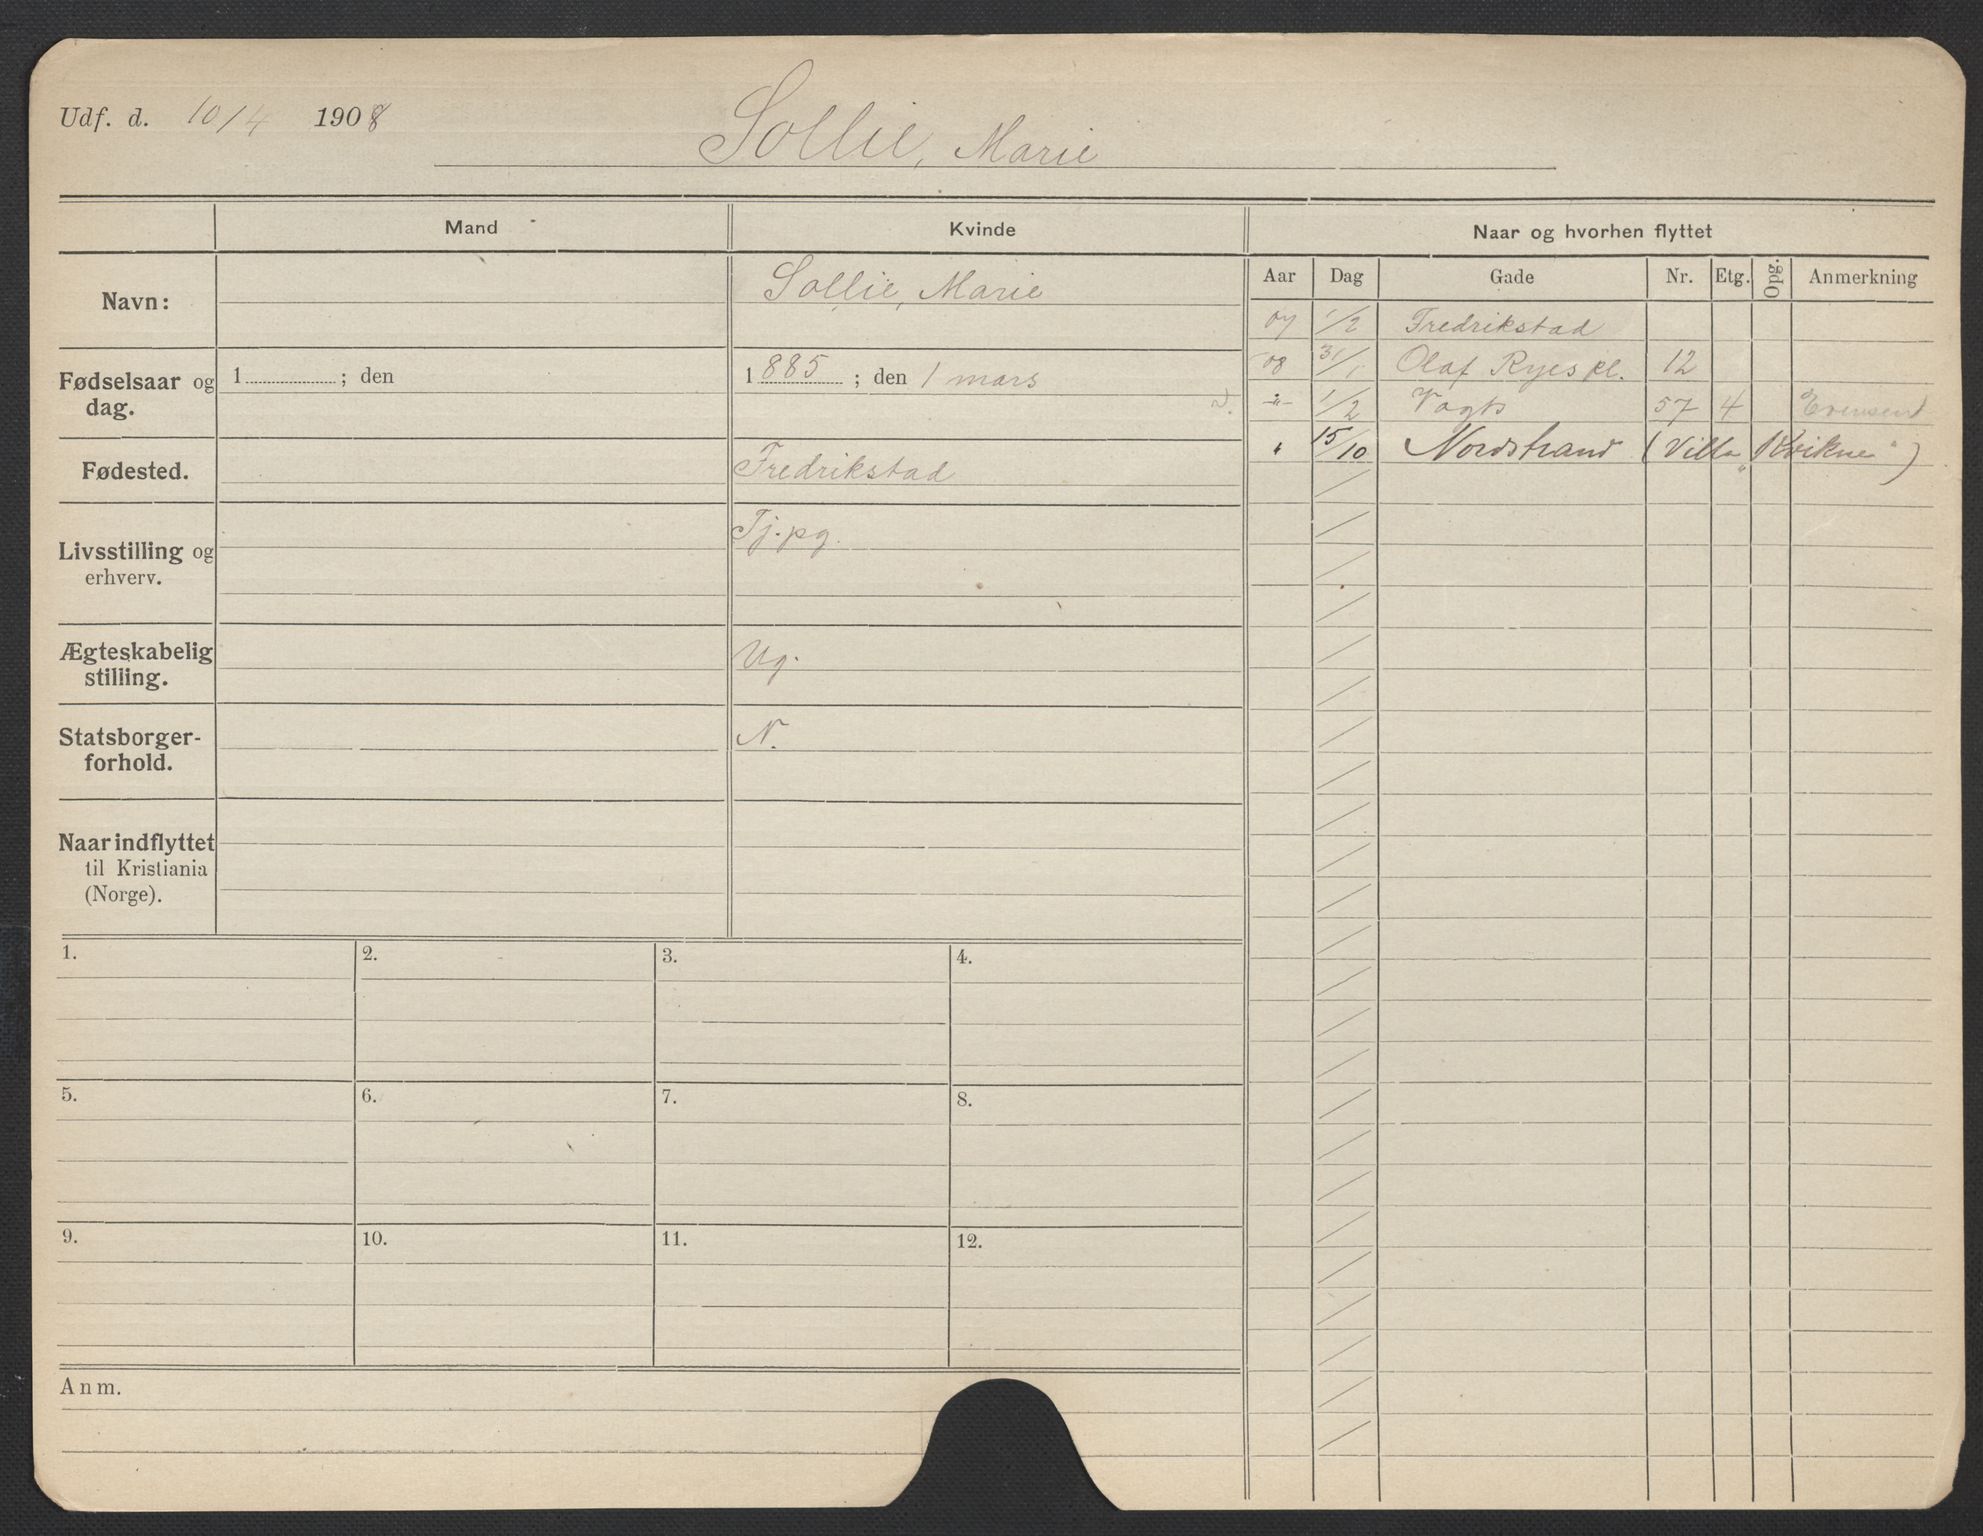 Udf. d. 10/4 1908
Sollie, Marie
Mand Kvinde Naar og hvorhen flyttet
Aar Dag Gade Nr. Etg. Opg. Anmerkning
Navn: Sollie, Marie
Fødselsaar og dag. 1 ; den 1885 ; den 1 mars
Fødested. Fredrikstad
Livsstilling og erhverv. Tj.pg.
Ægteskabelig stilling. Ug.
Statsborger-
forhold. N.
Naar indflyttet
til Kristiania
(Norge).
07 1/2 Fredrikstad
08 31/1 Olaf Ryes pl. 12
-"- 1/2 Vogts 57 4
" 15/10 Nordstrand (Villa „Kvikne")
1. 2. 3. 4.
5. 6. 7. 8.
9. 10. 11. 12.
Anm.